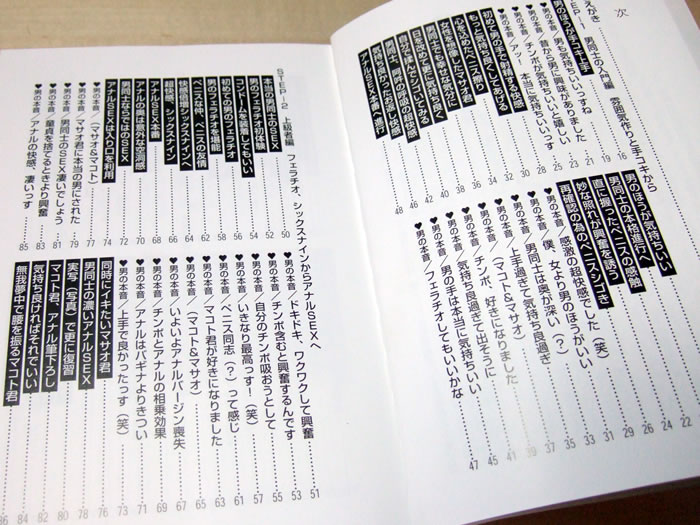 次
えがき
男同士の入門編 雰囲気作りと手コキから
男のほうが手コキ上手 16
♥男の本音／男も気持ちいいっすね 19
♥男の本音／昔から男に興味がありました 21
♥男の本音／チンポが気持ちいいと嬉しい 23
♥男の本音／アッ！ 本当に気持ちいいっす 25
初めて男の手で射精する快感 28
もっと気持ち良くしてあげる 30
心を込めたペニス擦り 32
女性を拒否したマサオ君 34
男同士でも幸せな気分に 36
日常を改めて更に気持ち良く 38
自分と揉んでシゴいてみる 40
男同士、阿吽の呼吸の超快感 42
気持ち良かったにお返し 46
アナルSEX本番へ進行 48
男のほうが気持ちいい 22
男同士の本格進行へ 24
直に握ったペニスの感触 26
妙な照れが興奮を誘う 29
再確認の為のペニスシゴき 31
♥男の本音／感激の超快感でした（笑） 33
♥男の本音／僕、女より男のほうがいい 35
（マコト＆マサオ）
♥男の本音／男同士は奥が深い（？） 37
♥男の本音／上手過ぎて気持ち良過ぎ 39
♥男の本音／チンポ、好きになりました 41
（マコト＆マサオ）
♥男の本音／気持ち良過ぎて出そうに 43
♥男の本音／男の手は本当に気持ちいい 45
♥男の本音／フェラチオしてもいいかな 47
STEP!・2 上級者編 フェラチオ、シックスナインからアナルSEXへ
本当の男同士のSEX 50
男のフェラチオ初体験 52
コンドームを装着してもいい 54
初めての男のフェラチオ 56
男のフェラチオを堪能 58
ペニスな仲、ペニスの友情 60
快感倍増シックスナインへ 62
超快感、シックスナイン 64
アナルSEX本番 66
アナルの奥は意外な空洞感 68
男同士ならではのSEX 70
アナルSEXは入り口を利用 72
♥男の本音／（マサオ＆マコト） 74
♥男の本音／マサオ君に本当の男にされた 77
♥男の本音／男同士のSEX凄いでしょう 79
♥男の本音／童貞を捨てるときより興奮 81
♥男の本音／アナルの快感、凄いっす 83
85
♥男の本音／ドキドキ、ワクワクして興奮 51
♥男の本音／チンポ含むと興奮するんです 53
♥男の本音／自分のチンポ吸おうとして 55
♥男の本音／いきなり最高っす！（笑） 57
♥男の本音／ペニス同志（？）って感じ 59
♥男の本音／マコト君が好きになりました 61
（マコト＆マサオ）
♥男の本音／いよいよアナルバージン喪失 65
♥男の本音／チンポとアナルの相乗効果 67
♥男の本音／アナルはバギナよりきつい 69
♥男の本音／上手で良かったっす（笑） 71
73
同時にイキたいマサオ君 76
男同士の濃いアナルSEX 78
実写（写真）で更に復習 80
マコト君、アナル筆下ろし 82
気持ち良ければそれでいい 84
無我夢中で腰を振るマコト君 86